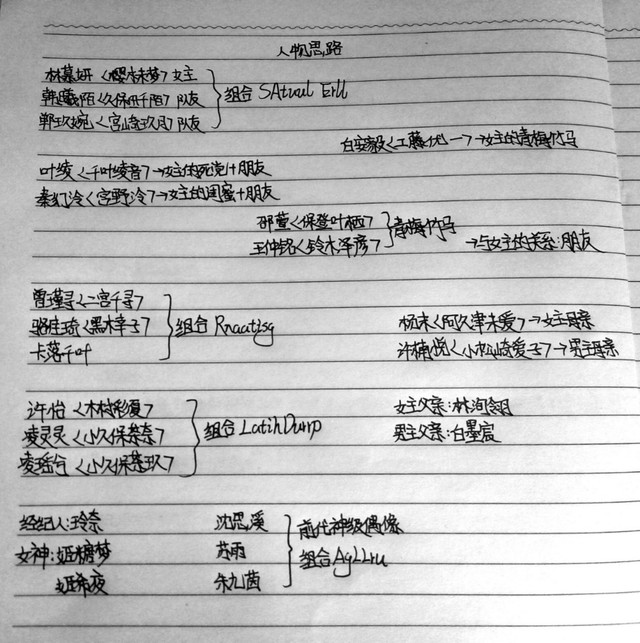 人物思路
林慕妍<樱木未梦>女主
韩曦陌<久保田千陌>队友 组合 SAtuul Erll
郭玖婉<宫崎玖月>队友
白安毅<工藤优一>→女主的青梅竹马
叶绫<千叶绫音>→女主的死党+朋友
秦幻泠<宫野泠>→女主的闺蜜+朋友
邵萱<保登叶栖>
王仲铭<铃木泽彦> 青梅竹马 →与女主的关系:朋友
曾瑾寻<二宫千寻>
骆佳琦<黑木幸子> 组合 Rnaatisg
卡落千叶
杨末<阿久津未爱>→女主母亲
许楠悦<小松崎爱子>→男主母亲
许怡<木村彩夏>
凌灵灵<小久保奈奈> 组合 LatihDurrp
凌瑶兮<小久保奈玖>
女主父亲:林洵翎
男主父亲:白墨宸
经纪人:玲奈 沈思溪 前代神级偶像
女神:姬糖梦 苏雨 组合AgLLru
姬希夜 朱九茵